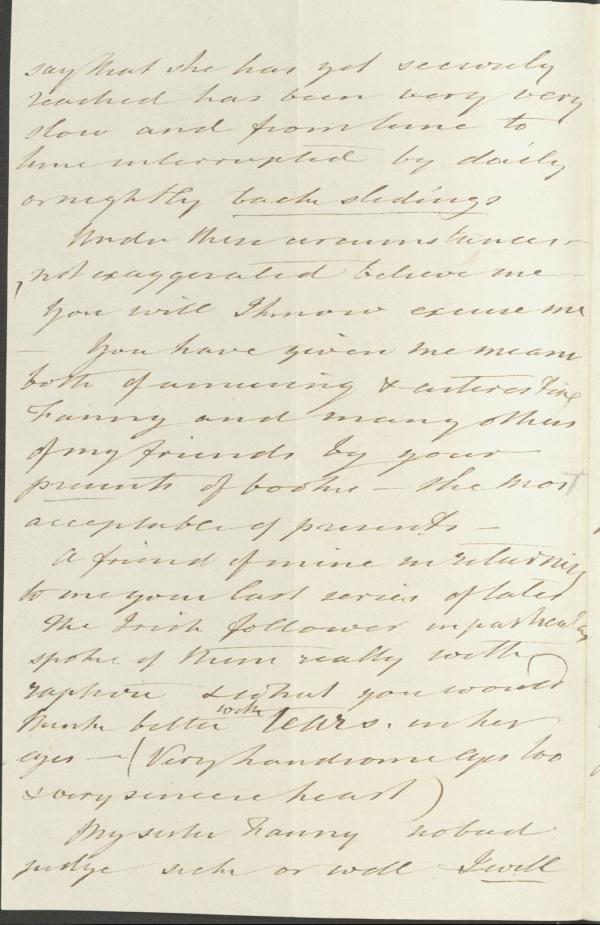 say that she has yet securely
reached has been very very
slow and from time to
time interrupted by daily
or nightly back slidings
Under these circumstances –
not exaggerated believe me –
you will I know excuse me
– You have given me means
both of amusing & interesting
Fanny and many others
of my friends by your
presents of books – the most
acceptable of presents –
A friend of mine in returning
to me your last series of tales
The Irish follower in particular
spoke of them really with
rapture & what you would
think better with tears. in her
eyes – (Very handsome eyes too
& very sincere heart)
My sister Fanny no bad
judge sick or well I will